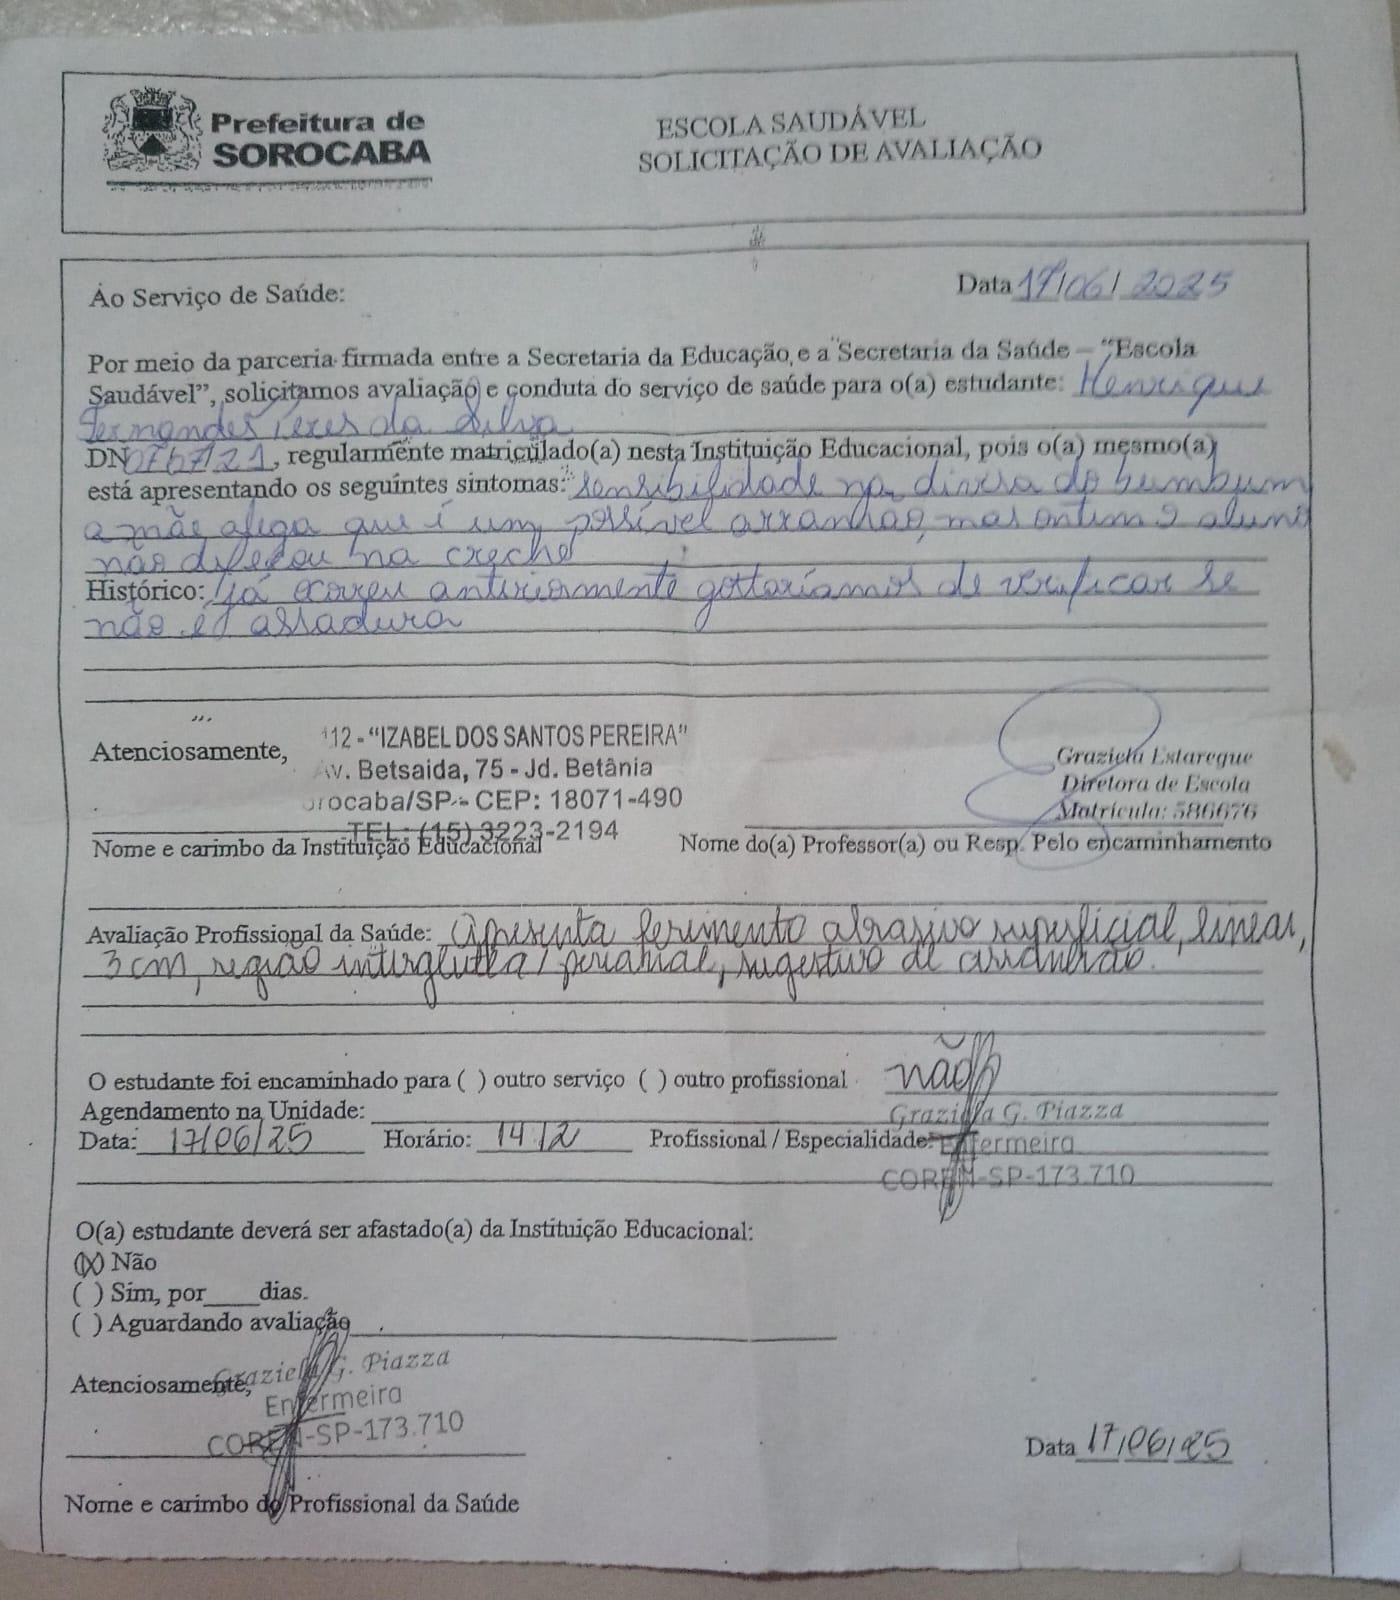 Prefeitura de
SOROCABA
ESCOLA SAUDÁVEL
SOLICITAÇÃO DE AVALIAÇÃO
Ao Serviço de Saúde:
Data 17/06/2025
Por meio da parceria firmada entre a Secretaria da Educação, e a Secretaria da Saúde – "Escola
Saudável", solicitamos avaliação e conduta do serviço de saúde para o(a) estudante: Henrique
Fernandes da Silva
DN 07/07/21, regularmente matriculado(a) nesta Instituição Educacional, pois o(a) mesmo(a)
está apresentando os seguintes sintomas: sensibilidade na do bumbum
a mãe alega que é um possível arranhão, mas ontem o aluno
não defecou na creche
Histórico: já ocorreu anteriormente gostaríamos de verificar se
não é assadura
Atenciosamente,
112 - "IZABEL DOS SANTOS PEREIRA"
Av. Betsaida, 75 - Jd. Betânia
orocaba/SP - CEP: 18071-490
TEL: (15) 3223-2194
Graziela Estareque
Diretora de Escola
Matrícula: 586676
Nome e carimbo da Instituição Educacional
Nome do(a) Professor(a) ou Resp. Pelo encaminhamento
Avaliação Profissional da Saúde: Apresenta ferimento abrasivo superficial, linear,
3 cm, região interglútea / perianal, sugestivo de arranhão.
O estudante foi encaminhado para ( ) outro serviço ( ) outro profissional não
Agendamento na Unidade:
Graziela G. Piazza
Data: 17/06/25 Horário: 14 12 Profissional / Especialidade: Enfermeira
COREN-SP-173.710
O(a) estudante deverá ser afastado(a) da Instituição Educacional:
(X) Não
( ) Sim, por____dias.
( ) Aguardando avaliação
Atenciosamente,
Graziela G. Piazza
Enfermeira
COREN-SP-173.710
Data 17/06/25
Nome e carimbo do Profissional da Saúde